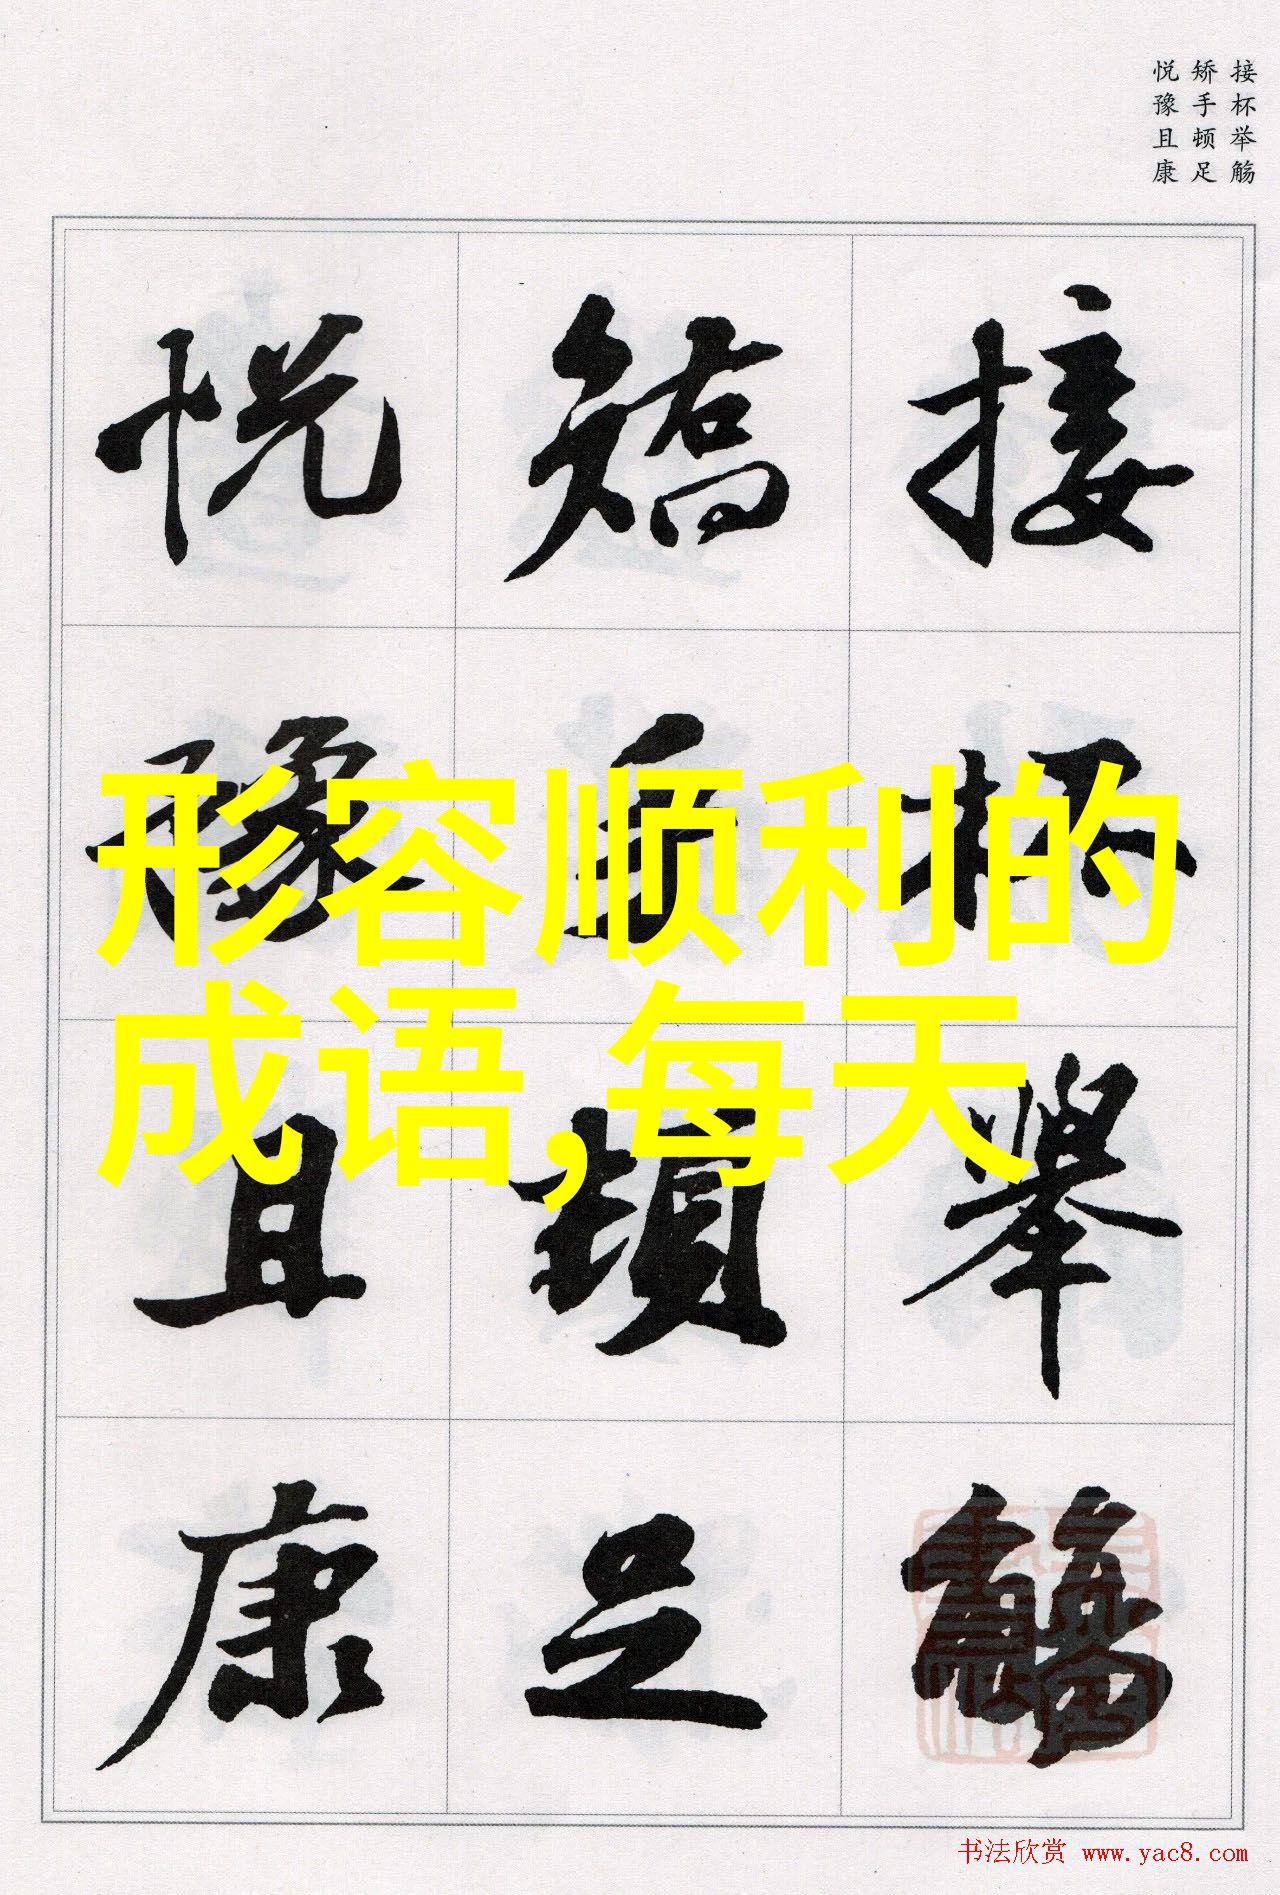 接杯举觞
矫手顿足
悦豫且康
接杯舉觴
矯手頓足
悦豫且康
形容顺利的
成语,每天
书法欣赏 www.yac8.com